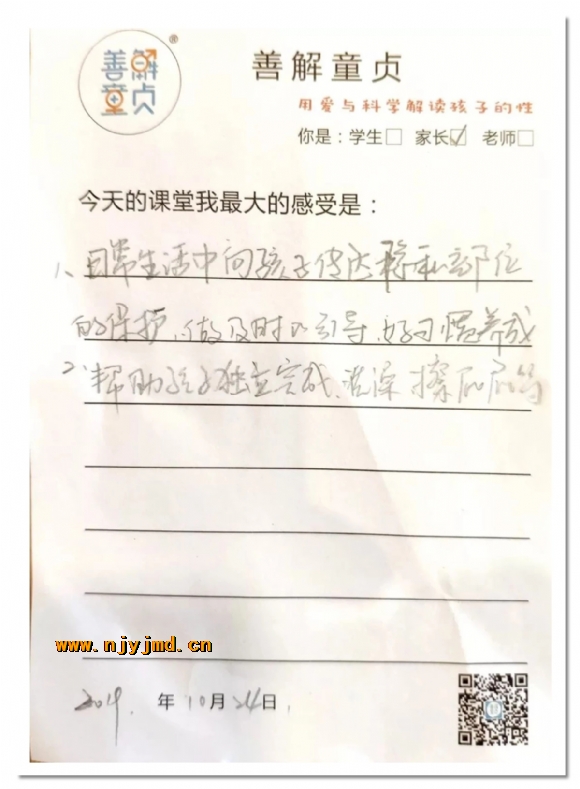 善解童贞
®
善解童贞
用爱与科学解读孩子的性
你是：学生□ 家长☑ 老师□
今天的课堂我最大的感受是：
1、日常生活中向孩子传达隐私部位
的保护，做及时的引导，好习惯养成
2、帮助孩子独立完成、洗澡擦屁屁等
www.njyjmd.cn
2019.年10月24日.